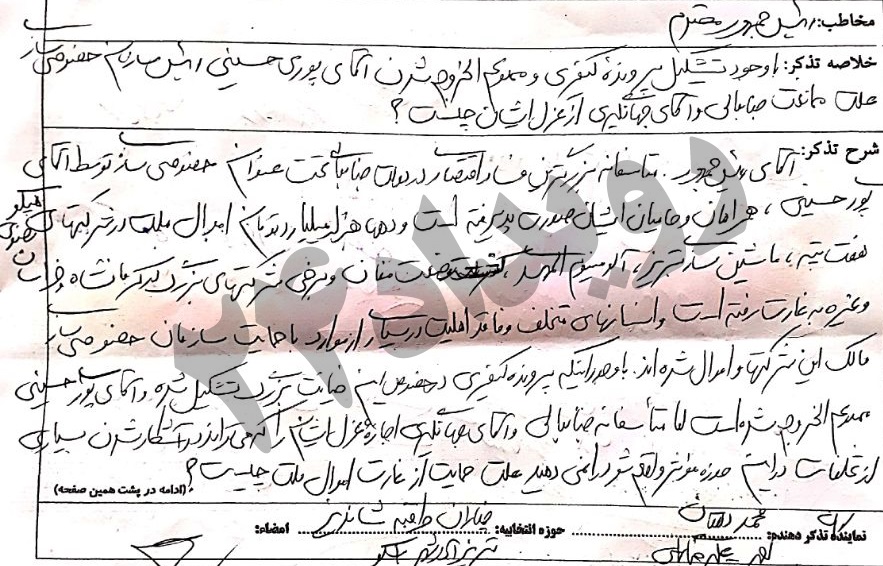 مخاطب: رئیس جمهور محترم
خلاصه تذکر: با وجود تشکیل پرونده کیفری و ممنوع الخروج شدن آقای پوری حسینی رئیس سازمان خصوصی سازی
علت ممانعت جنابعالی و آقای جهانگیری از عزل ایشان چیست؟
شرح تذکر: آقای رئیس جمهور. متاسفانه بزرگترین فساد اقتصادی در دولت جنابعالی تحت عنوان خصوصی سازی توسط آقای
پور حسینی، همراهان و حامیان ایشان صورت پذیرفته است و دهها هزار میلیارد تومان اموال ملت در شرکتهای
هفت تپه، ماشین سازی تبریز، آلومینیوم المهدی، کشت و صنعت مغان و برخی شرکتهای بزرگ دیگر کرمانشاه و خراسان
و غیره به غارت رفته است و انسانهای متخلف و فاقد اهلیت در بسیاری از موارد با حمایت سازمان خصوصی سازی
مالک این شرکتها و اموال شده اند. با وجود اینکه پرونده کیفری در خصوص این خیانت بزرگ تشکیل شده و آقای پور حسینی
ممنوع الخروج شده است اما متأسفانه جنابعالی و آقای جهانگیری اجازه عزل ایشان را که می تواند در آشکار شدن بسیاری
از تخلفات در این حوزه مؤثر واقع شود را نمی دهید علت حمایت از غارت اموال ملت چیست؟
(ادامه در پشت همین صفحه)
نماینده تذکر دهنده: محمد دهقان حوزه انتخابیه: چناران طرقبه شاندیز امضاء:
تبریز آذرشهر اسکو
رویداد۲۴